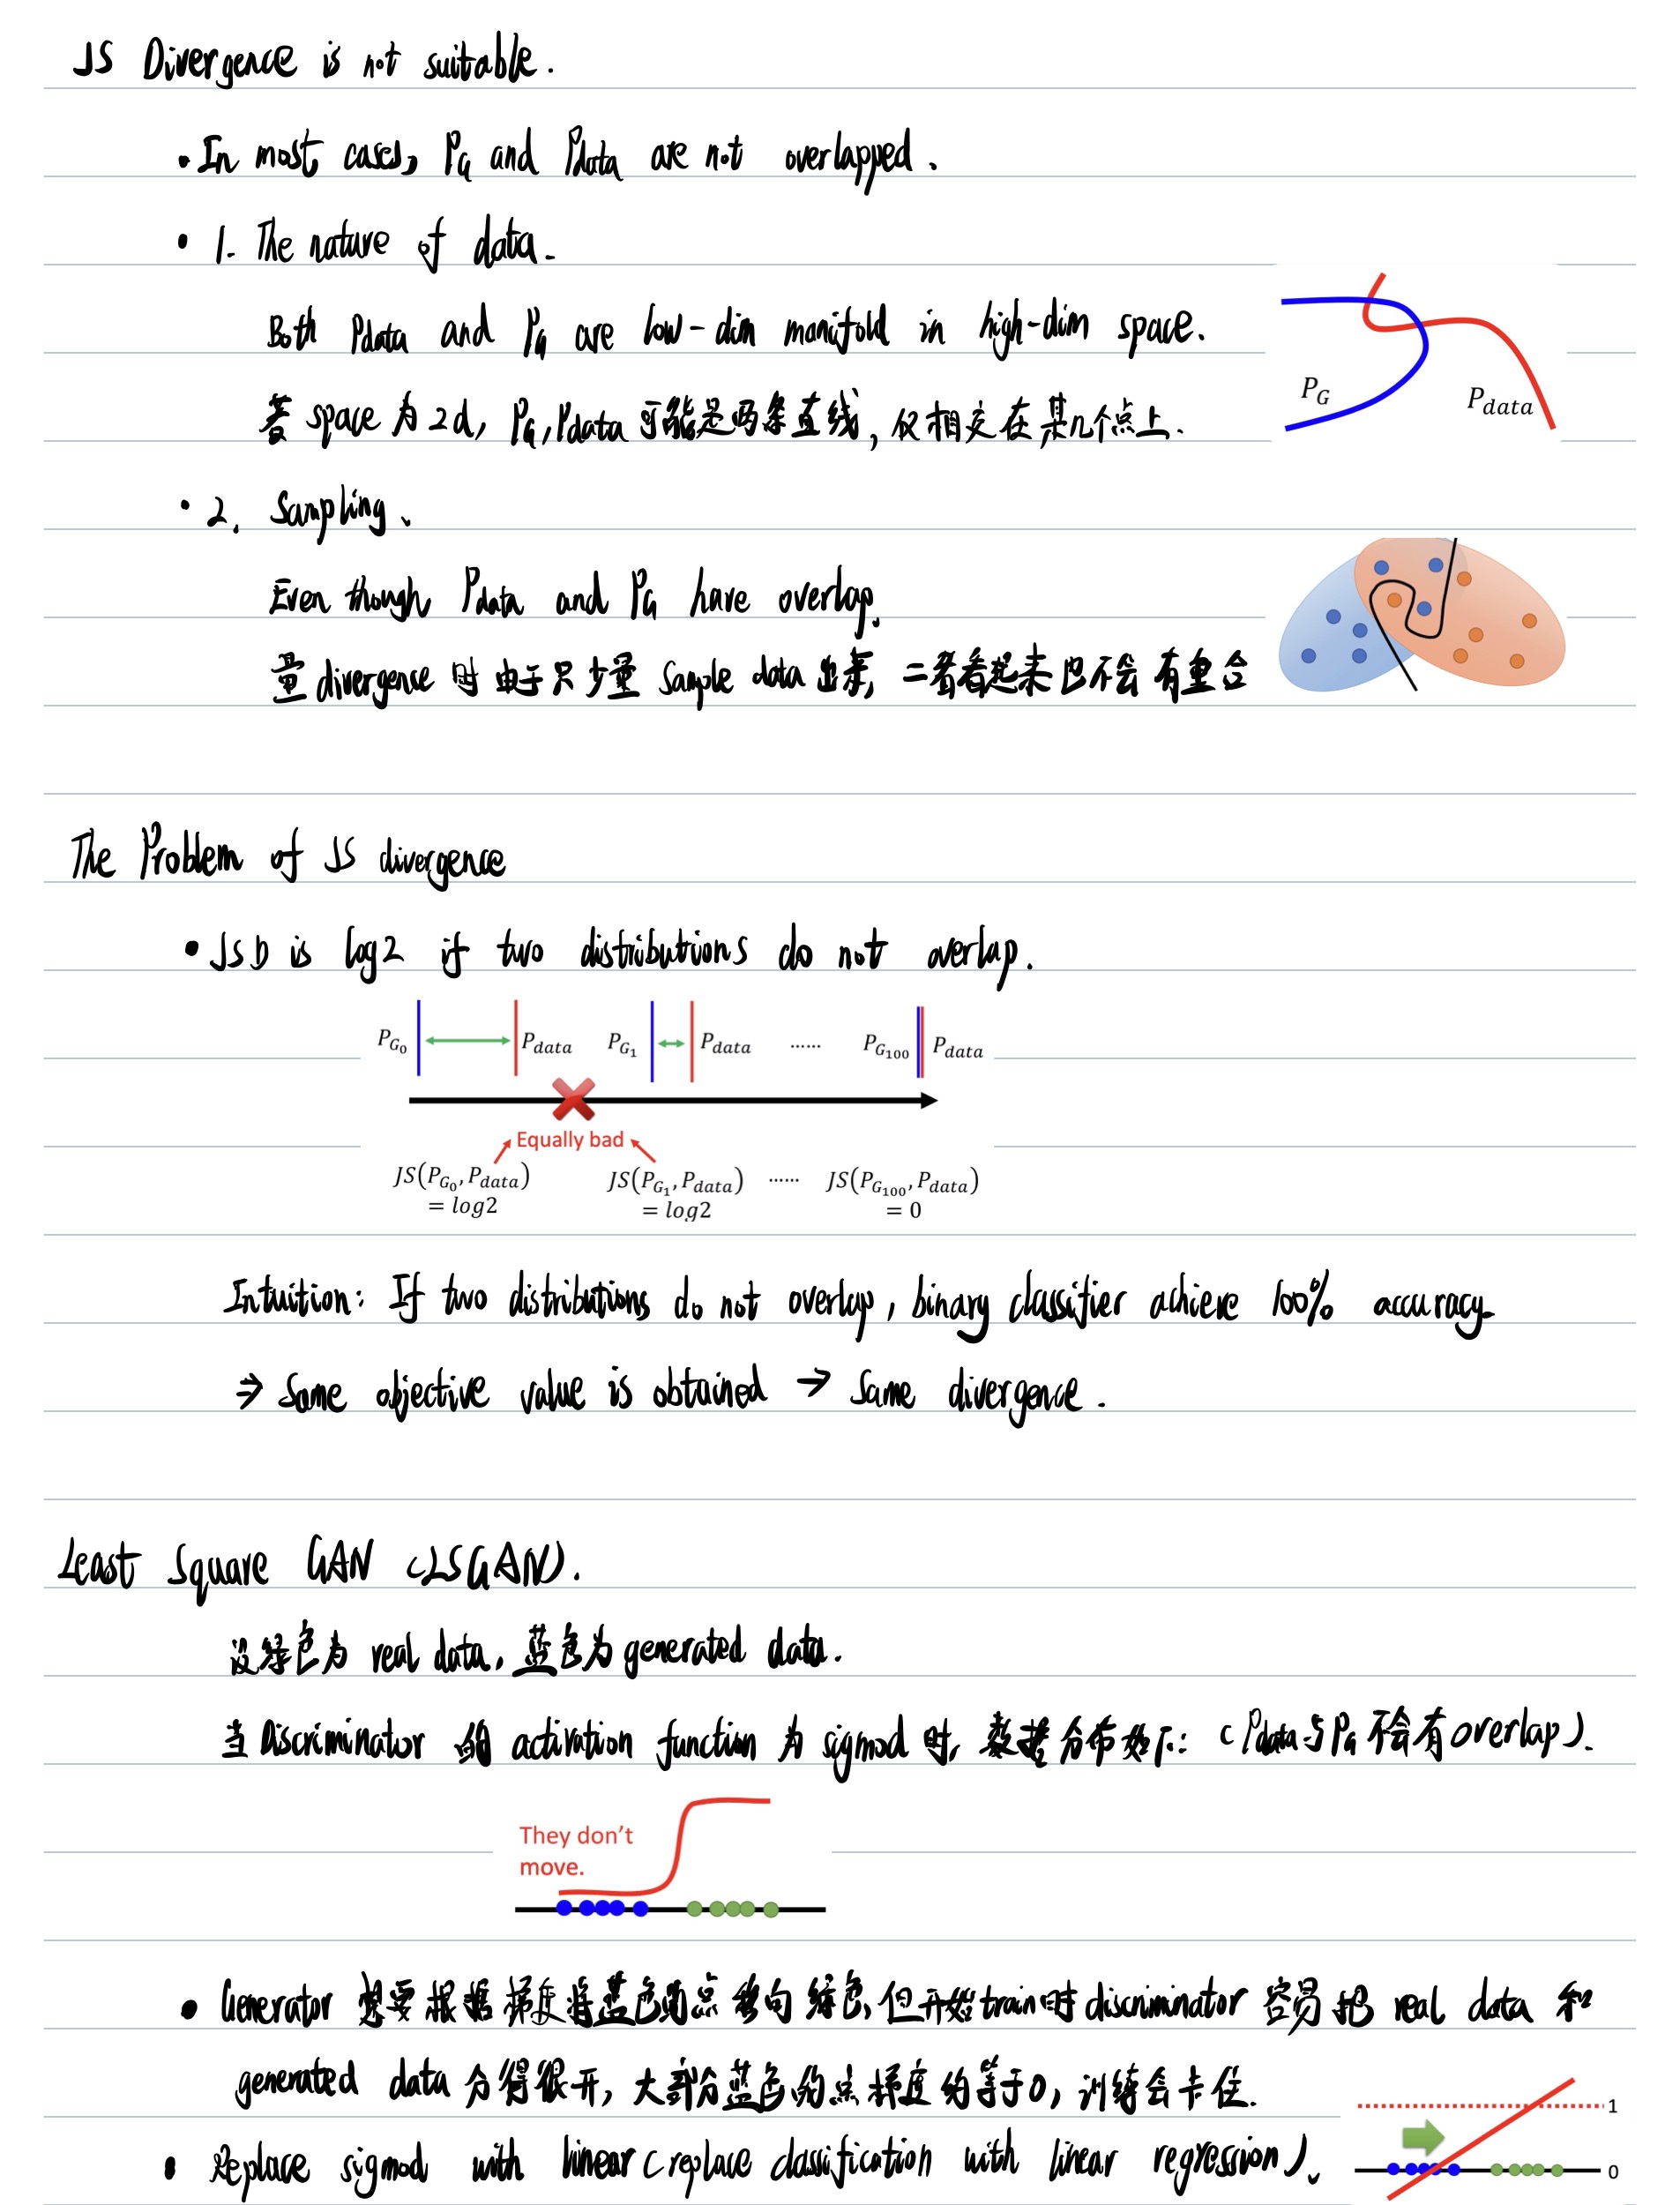 JS Divergence is not suitable.
• In most cases, PG and Pdata are not overlapped.
• 1. The nature of data.
Both Pdata and PG are low-dim manifold in high-dim space.
PG
Pdata
若 space 为 2d, PG, Pdata 可能是两条直线, 仅相交在某几个点上.
• 2. Sampling.
Even though Pdata and PG have overlap.
量 divergence 时 由于只少量 sample data 出来, 二者看起来也不会有重合
The Problem of JS divergence
• JSD is log2 if two distributions do not overlap.
PG0 Pdata PG1 Pdata ...... PG100 Pdata
Equally bad
JS(PG0, Pdata) JS(PG1, Pdata) ...... JS(PG100, Pdata)
= log2 = log2 = 0
Intuition: If two distributions do not overlap, binary classifier achieve 100% accuracy
⇒ Same objective value is obtained → Same divergence.
Least Square GAN (LSGAN).
设绿色为 real data, 蓝色为 generated data.
当 Discriminator 的 activation function 为 sigmod 时, 数据分布如下: (Pdata与PG不会有overlap).
They don't
move.
• Generator 想要根据梯度将蓝色的点移向绿色, 但开始train时discriminator 容易把 real data 和
generated data 分得很开, 大部分蓝色的点梯度约等于0, 训练会卡住.
1
• Replace sigmod with linear (replace classification with linear regression).
0